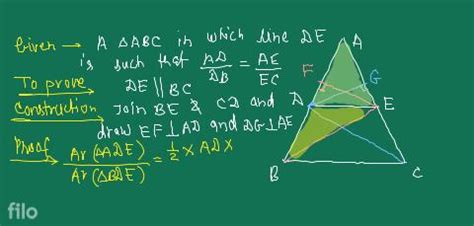 Given → A △ABC in which line DE
is such that AD/DB = AE/EC
To prove DE || BC
Construction Join BE & CD and
draw EF⊥AD and DG⊥AE
Proof Ar(△ADE)/Ar(△BDE) = 1/2 × AD ×
A
F
G
D
E
B
C
filo